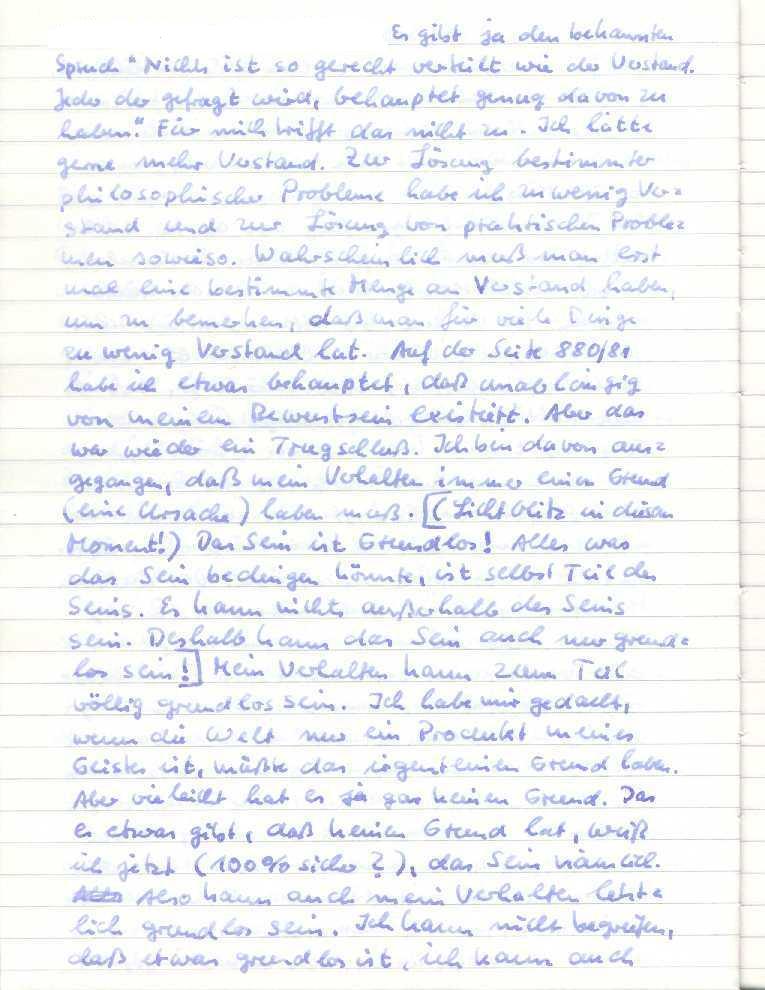 Es gibt ja den bekannten
Spruch "Nichts ist so gerecht verteilt wie der Verstand.
Jeder der gefragt wird, behauptet genug davon zu
haben." Für mich trifft das nicht zu. Ich hätte
gerne mehr Verstand. Zur Lösung bestimmter
philosophischer Probleme habe ich zu wenig Ver=
stand und zur Lösung von praktischen Proble=
men sowieso. Wahrscheinlich muß man erst
mal eine bestimmte Menge an Verstand haben,
um zu bemerken, daß man für viele Dinge
zu wenig Verstand hat. Auf der Seite 880/81
habe ich etwas behauptet, daß unabhängig
von meinem Bewustsein existiert. Aber das
war wieder ein Trugschluß. Ich bin davon aus=
gegangen, daß mein Verhalten immer einen Grund
(eine Ursache) haben muß. [(Lichtblitz in diesem
Moment!) Das Sein ist Grundlos! Alles was
das Sein bedingen könnte, ist selbst Teil des
Seins. Es kann nichts außerhalb des Seins
sein. Deshalb kann das Sein auch nur grund=
los sein!] Mein Verhalten kann zum Teil
völlig grundlos sein. Ich habe mir gedacht,
wenn die Welt nur ein Produkt meines
Geistes ist, müßte das irgenteinen Grund haben.
Aber vieleicht hat es ja gar keinen Grund. Das
es etwas gibt, daß keinen Grund hat, weiß
ich jetzt (100% sicher?), das Sein nämlich.
Also kann auch mein Verhalten letzt=
lich grundlos sein. Ich kann nicht begreifen,
daß etwas grundlos ist, ich kann auch